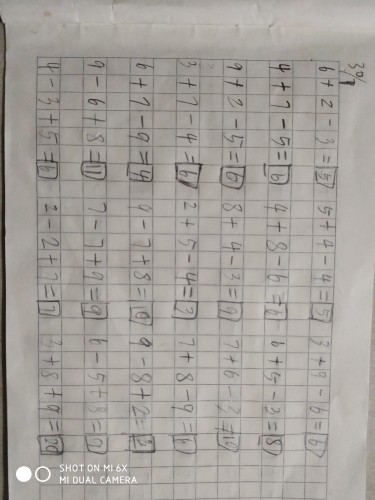 6+2-3=5 5+4-4=5 3+9-6=6
4+7-5=6 4+8-6=6 6+5-3=8
9+2-5=6 8+4-3=9 7+6-3=10
3+7-4=6 2+5-4=3 7+8-9=6
6+7-9=4 9-7+8=10 9-8+2=3
9-6+8=11 7-7+9=9 6-5+8=9
4-3+5=6 2-2+7=7 3+8+9=20
SHOT ON MI 6X
MI DUAL CAMERA